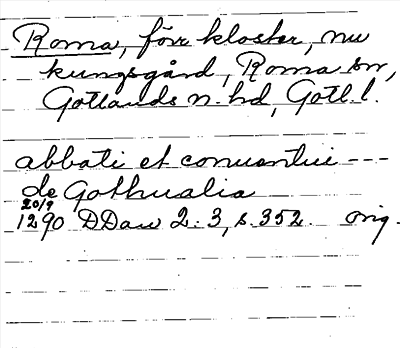 Roma, förr kloster, nu
kungsgård, Roma sn,
Gotlands n. hd, Gotl. l.
abbati et conuentui ---
de Gothualia
20/9
1290 DDan 2. 3, s. 352. orig.